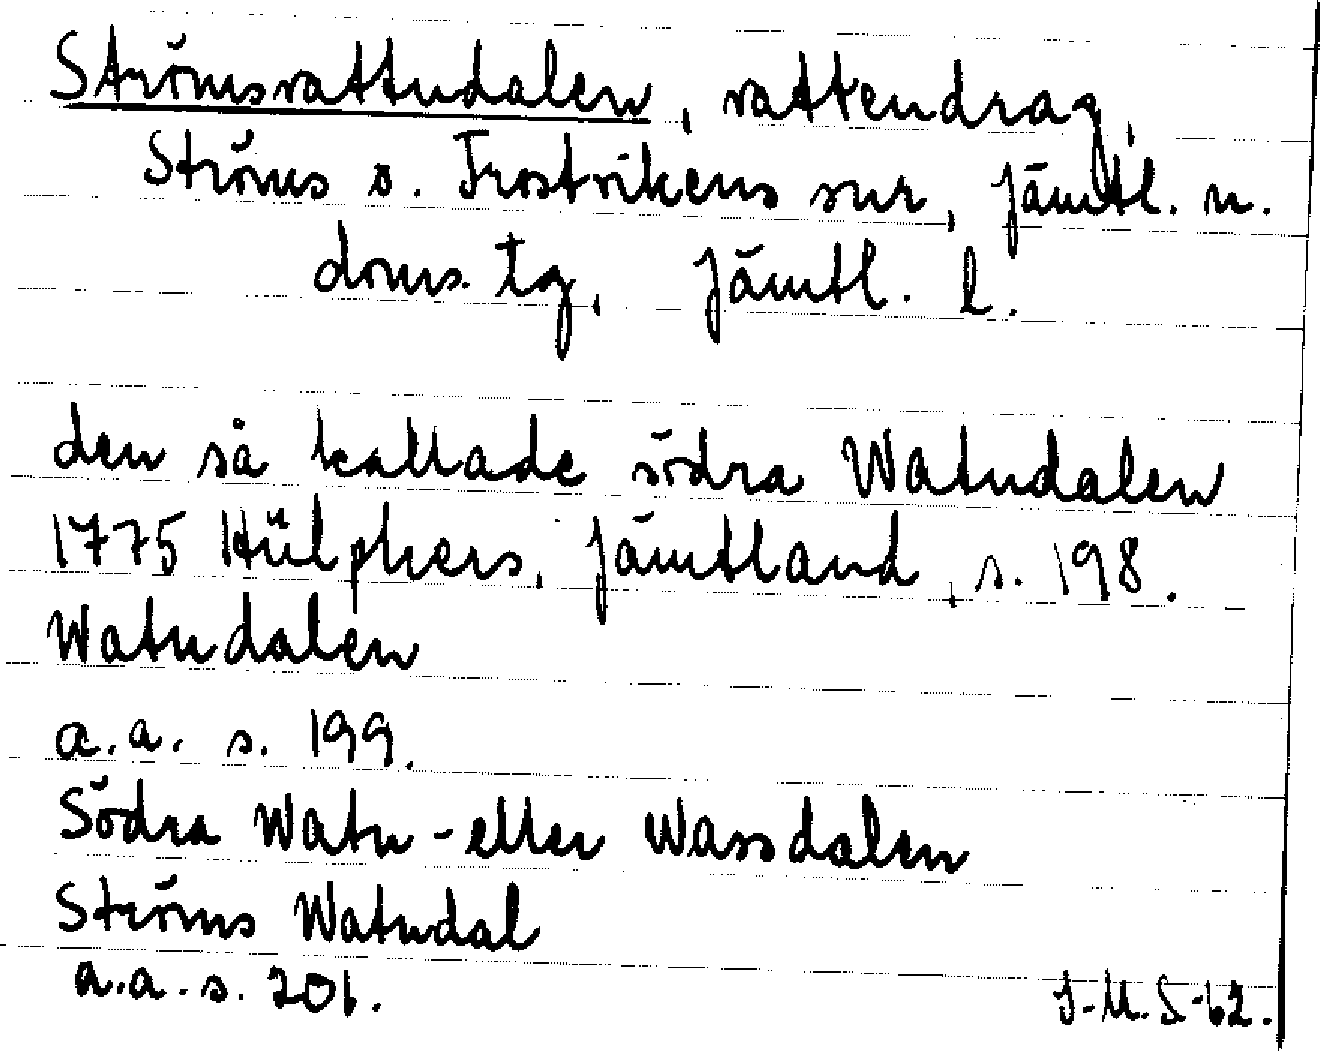 Strömsvattudalen, vattendrag,
Ströms o. Frostvikens snr, Jämtl. n.
doms. tg, Jämtl. l.
den så kallade södra Watudalen
1775 Hülphers, Jämtland, s. 198.
Watudalen
a.a. s. 199.
Södra Watu-eller Wassdalen
Ströms Watudal
a.a. s. 201.
I-M.S-62.